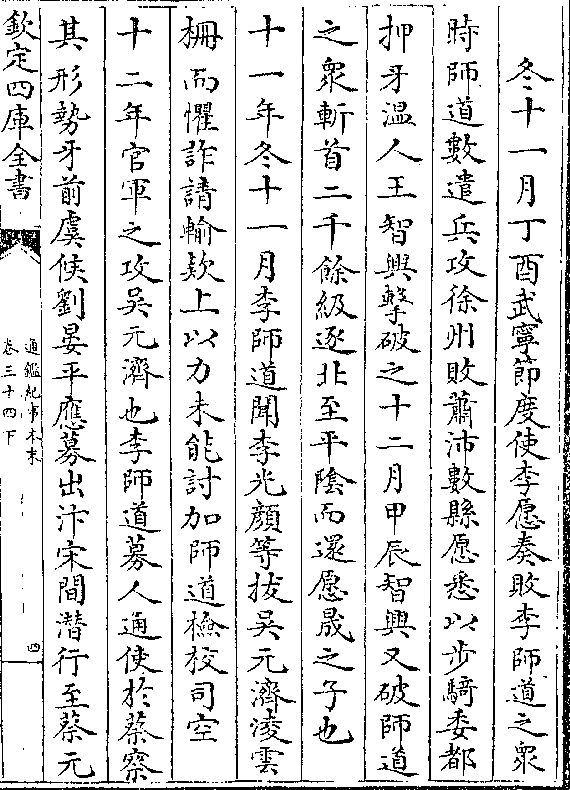 冬十一月丁酉武寧節度使李愿奏敗李師道之衆
時師道數遣兵攻徐州敗蕭沛數縣愿悉以步騎委都
押牙溫人王智興擊破之十二月甲辰智興又破師道
之衆斬首二千餘級逐北至平陰而還愿晟之子也
十一年冬十一月李師道聞李光顔等拔吳元濟淩雲
柵而懼詐請輸欵上以力未能討加師道檢校司空
十二年官軍之攻吳元濟也李師道募人通使於蔡察
其形勢牙前虞候劉晏平應募出汴宋間潛行至蔡元
欽定四庫全書
通鑑紀事本末
卷三十四下
四